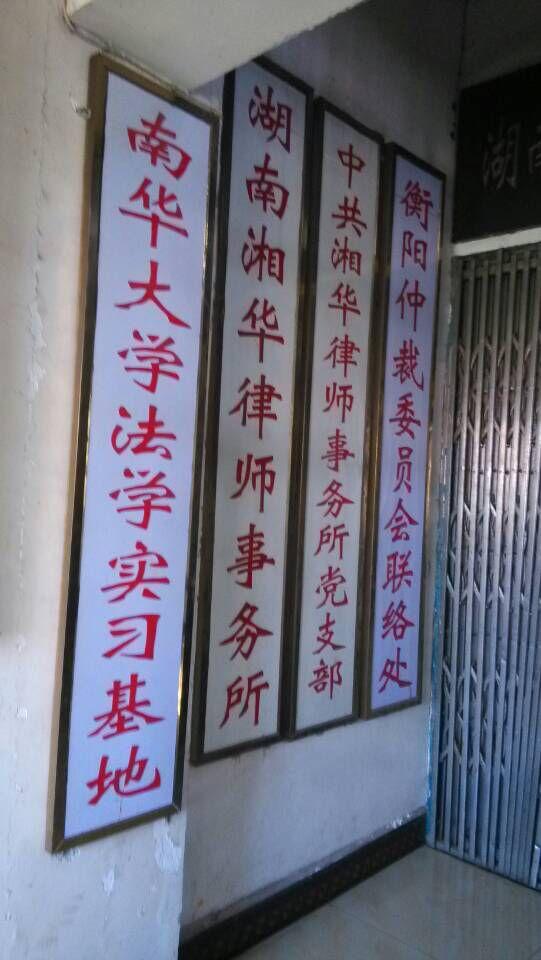 南华大学法学实习基地
湖南湘华律师事务所
中共湘华律师事务所党支部
衡阳仲裁委员会联络处
湖南